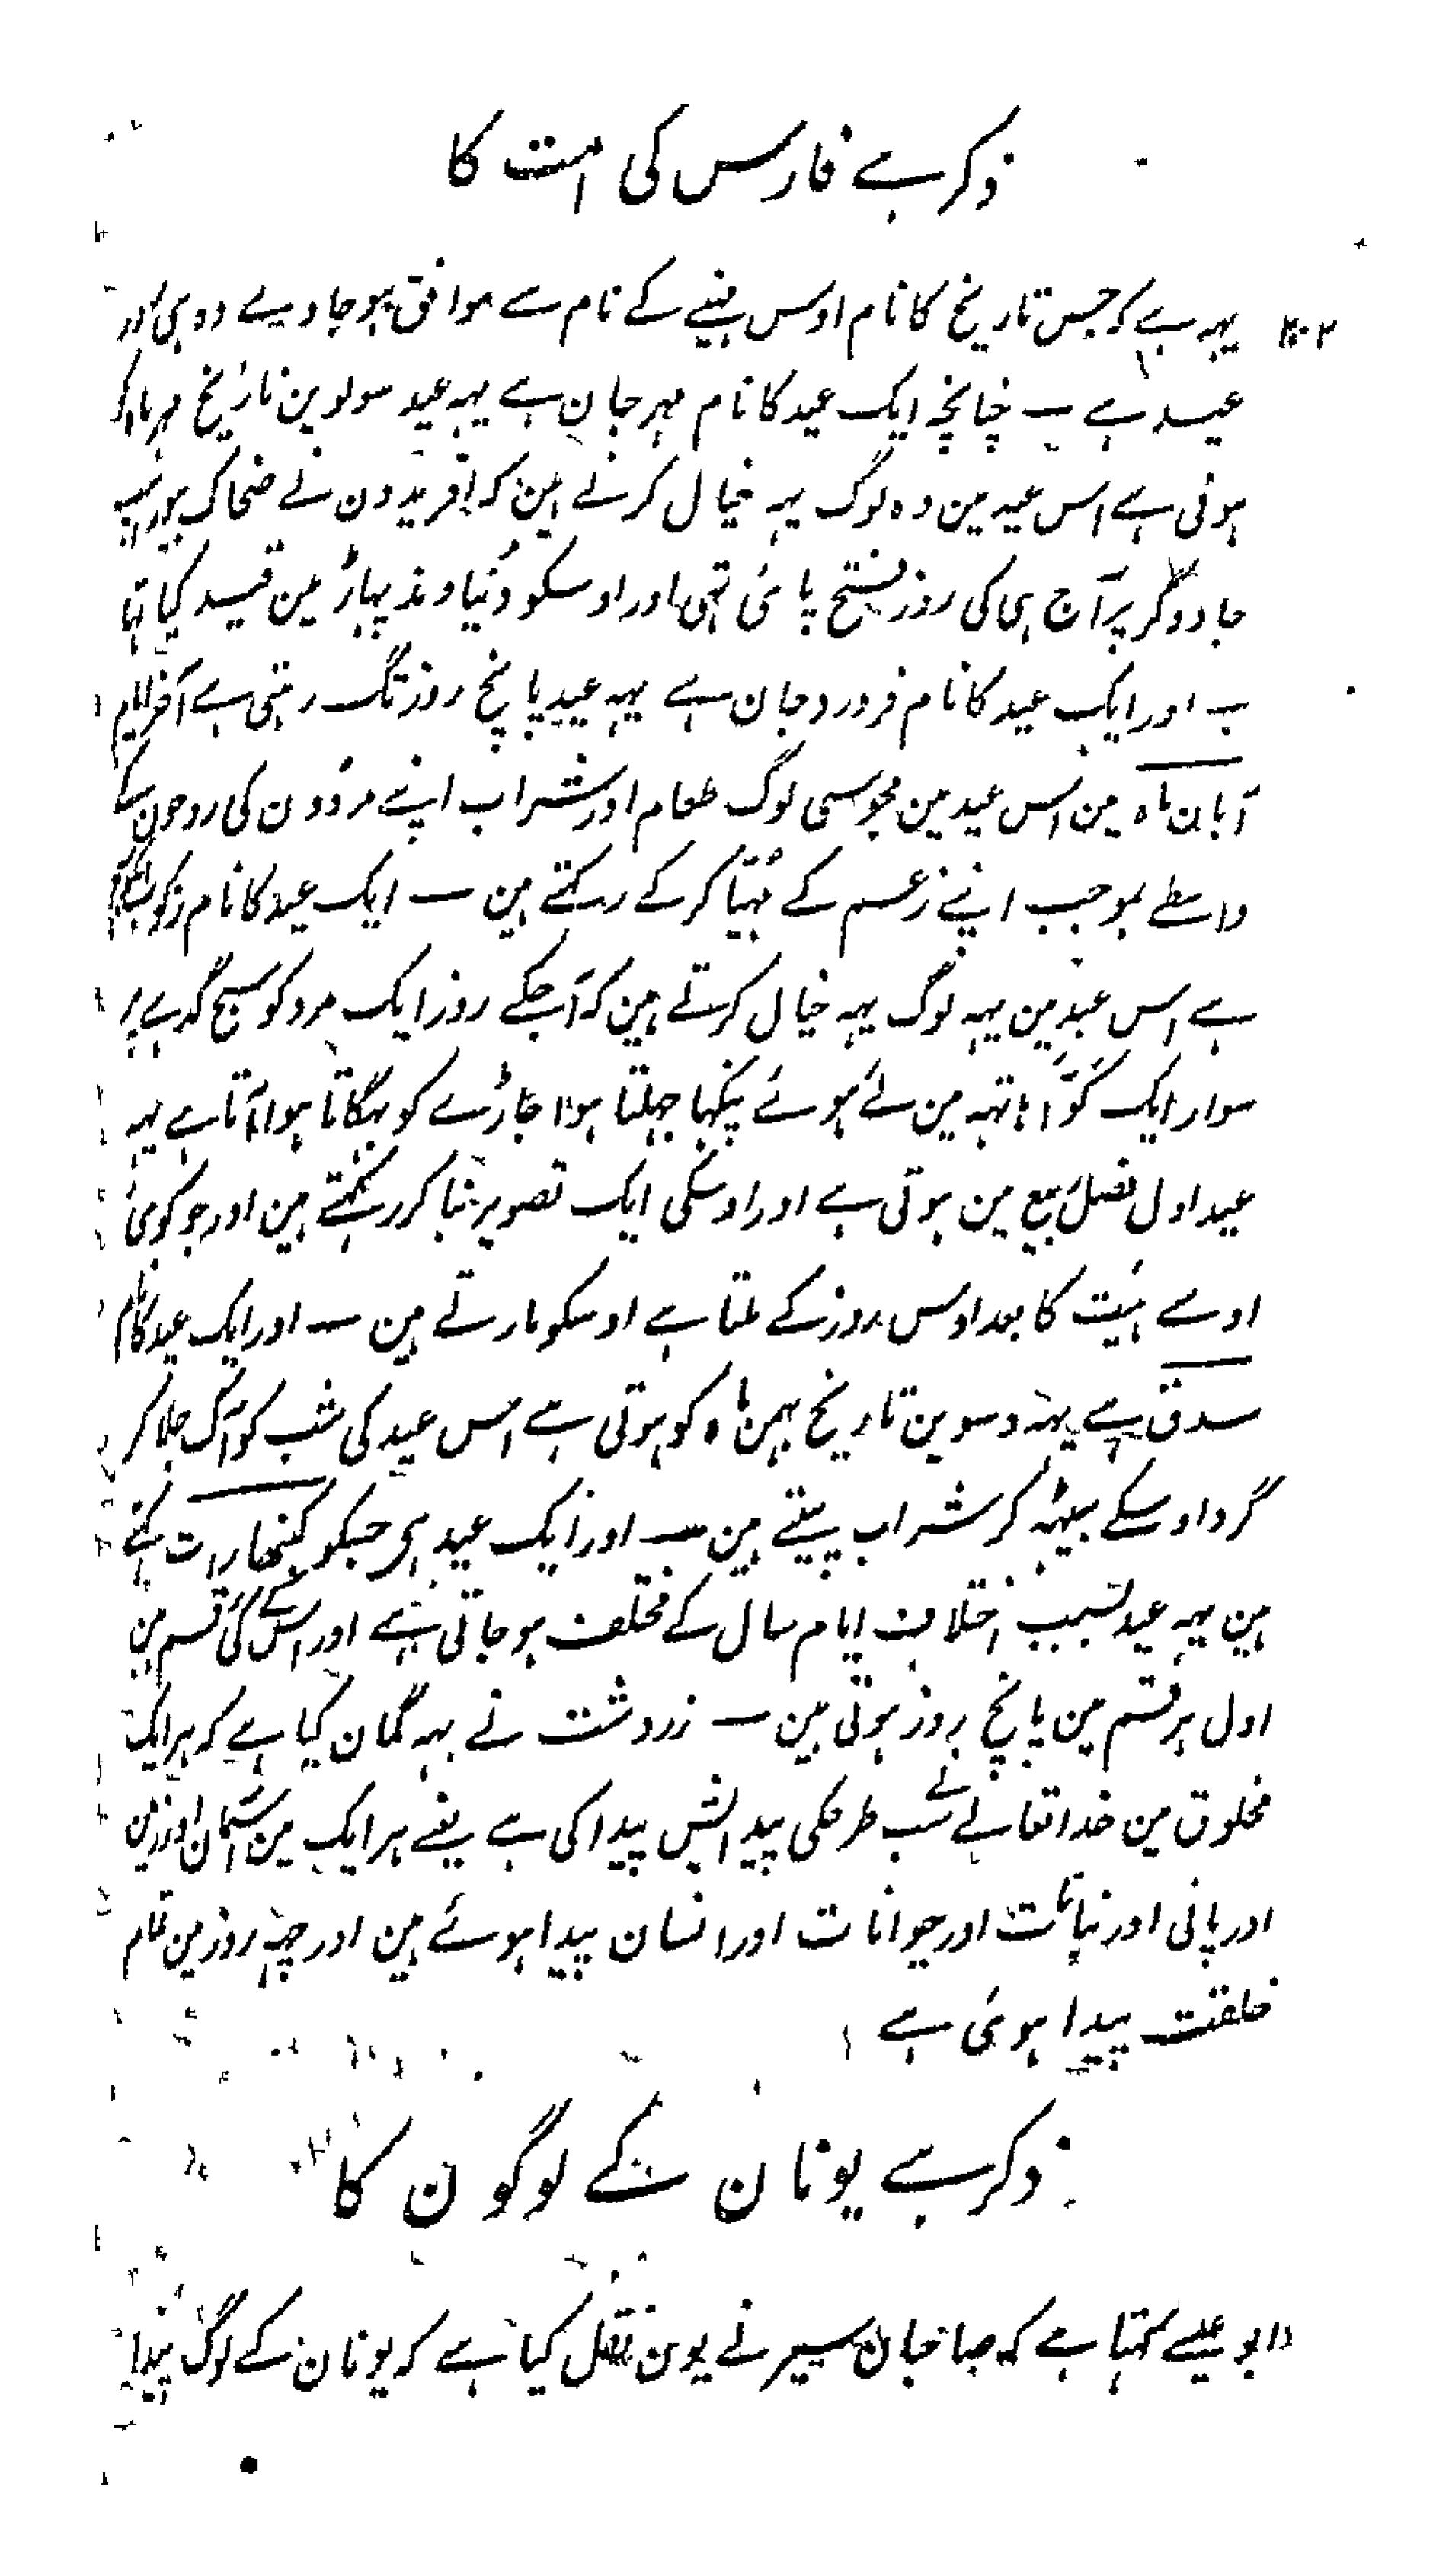 ذکر ہے فارس کی امت کا
۴۰۲ یہہ ہے کہ جس تاریخ کا نام اوس مہینے کے نام سے موافق ہو جاوے وہ ہی روز
عید ہے ۔ چنانچہ ایک عید کا نام مہرجان ہے یہہ عید سولوین تاریخ مہر ماہ کو
ہوتی ہے اس عید مین وہ لوگ یہہ خیال کرتے ہین کہ افریدون نے ضحاک بیوراسپ
جادوگر پر آج ہی کی روز فتح پائی تہی اور اوسکو دنیاوند پہاڑ مین قید کیا تہا
۔ اور ایک عید کا نام فروردجان ہے یہہ عید پانچ روز تک رہتی ہے آخر ایام
آبان ماہ مین اس عید مین مجوسی لوگ طعام اور شراب اپنے مردون کی روحون کے
واسطے بموجب اپنے زعم کے مہیا کر کے رکہتے ہین ۔ ایک عید کا نام
ہے اس عید مین یہہ لوگ یہہ خیال کرتے ہین کہ آجکے روز ایک مرد کوسج گدہے پر
سوار ایک کوّا ہاتہہ مین لئے ہوئے پنکہا جہلتا ہوا جاڑے کو بہگاتا ہوا آتا ہے یہہ
عید اول فصل ربیع مین ہوتی ہے اور اوسکی ایک تصویر بنا کر رکہتے ہین اور جو کوئی
اوسے ہیئت کا بعد اوس روز کے ملتا ہے اوسکو مارتے ہین ۔ اور ایک عید کا نام
سدق ہے یہہ دسوین تاریخ بہمن ماہ کو ہوتی ہے اس عید کی شب کو آگ جلا کر
گرد اوسکے بیٹہہ کر شراب پیتے ہین ۔ اور ایک عید ہی جسکو کنبہارات کہتے
ہین یہہ عید بسبب اختلاف ایام سال کے مختلف ہو جاتی ہے اور اس کے کئی قسم ہین
اول ہر قسم مین پانچ روز ہوتی ہین ۔ زردشت نے یہہ گمان کیا ہے کہ ہر ایک
مخلوق مین خدا تعالےٰ نے سب طرحکی پیدائش پیدا کی ہے یعنے ہر ایک مین آسمان اور زمین
اور پانی اور نباتات اور حیوانات اور انسان پیدا ہوئے ہین اور چہہ روز مین تمام
خلقت پیدا ہوئی ہے
ذکر ہے یونان کے لوگون کا
ابو عیسے کہتا ہے کہ صاحبان سیر نے یون نقل کیا ہے کہ یونان کے لوگ پیدا